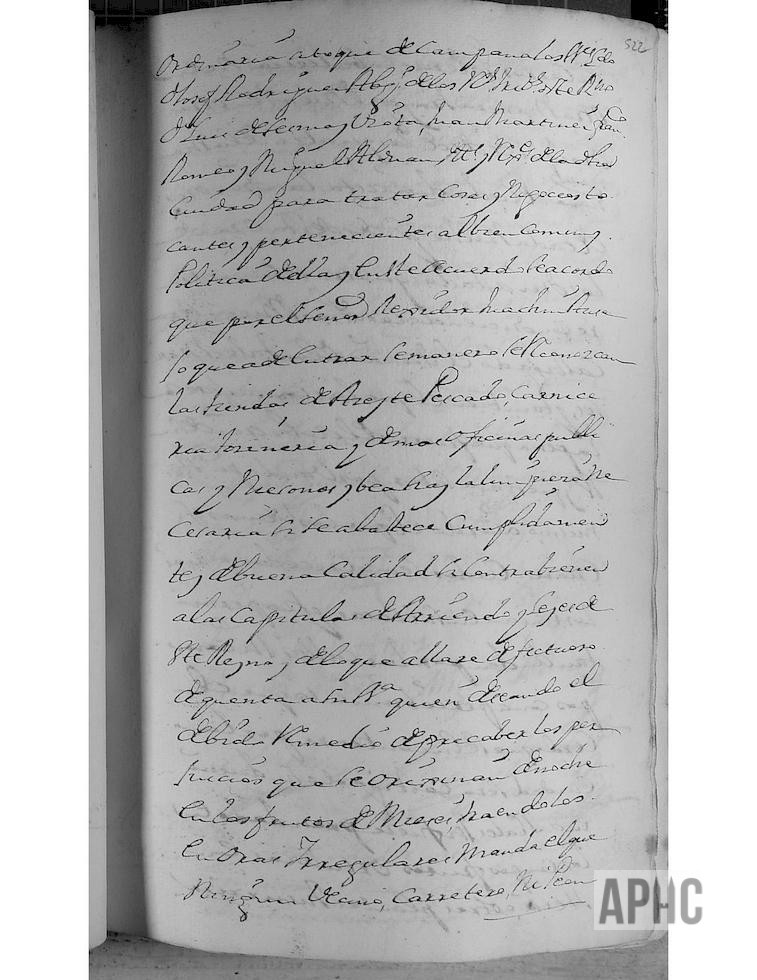 522
Ordinaria a toque de Campana los
Josef Rodriguez Abg.do de los R.s
D.n Luis de Lerma y Juan Martinez Fran.co
Romeo y Miguel Aldman y de la dha
Ciudad para tratar Cosas y Negocios to
cantes y pertenecientes al bien Comun y
Politica de ella y En Este Acuerdo Se acordo
que por el Señor Rexidor
lo que a de Entrar Semanero se Reconozcan
las tiendas de Azeyte Pescado, Carnice
ria tozineria y demas Oficinas publi
cas y Mesones y bea hay la limpieza Ne
cesaria Si Se abastece Cumplidamen
te y de buena Calidad Si Contrabienen
a las Capitulas de Arriendo y Leyes de
Este Reyno y de lo que allare defectuoso
de quenta a Su S.ª quien deseando el
debido Remedio de precaber los per
juicios que Se Orixinan de noche
En los frutos de Mieses traendolos
En Oras Irregulares Manda el que
Ningun Vecino, Carretero, Ni Peon
APHC